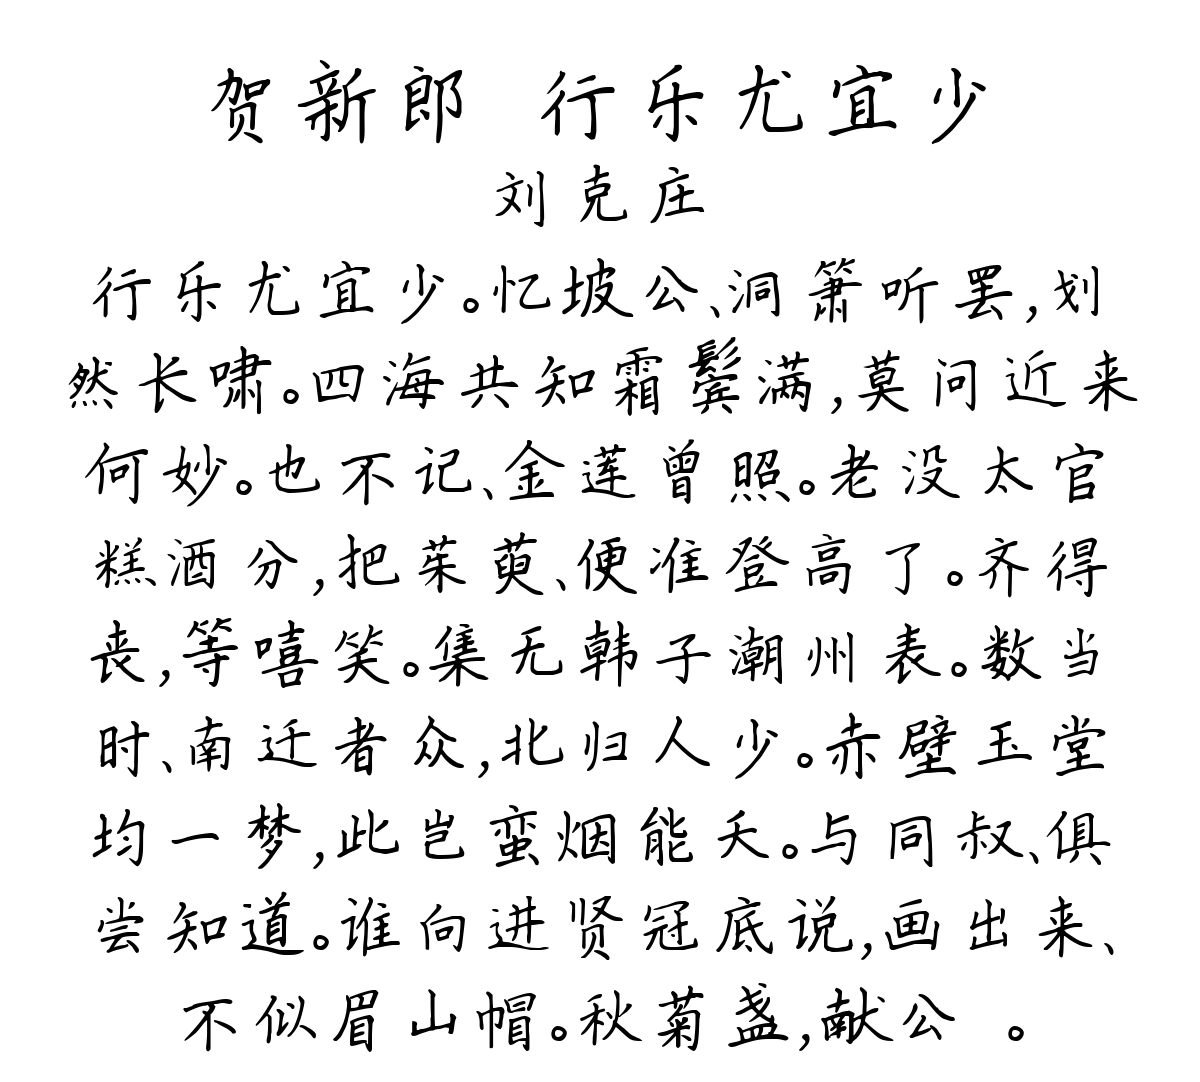 贺新郎 行乐尤宜少
刘克庄
行乐尤宜少。忆坡公、洞箫听罢,划
然长啸。四海共知霜鬓满,莫问近来
何妙。也不记、金莲曾照。老没太官
糕酒分,把茱萸、便准登高了。齐得
丧,等嘻笑。集无韩子潮州表。数当
时、南迁者众,北归人少。赤壁玉堂
均一梦,此岂蛮烟能夭。与同叔、俱
尝知道。谁向进贤冠底说,画出来、
不似眉山帽。秋菊盏,献公 。